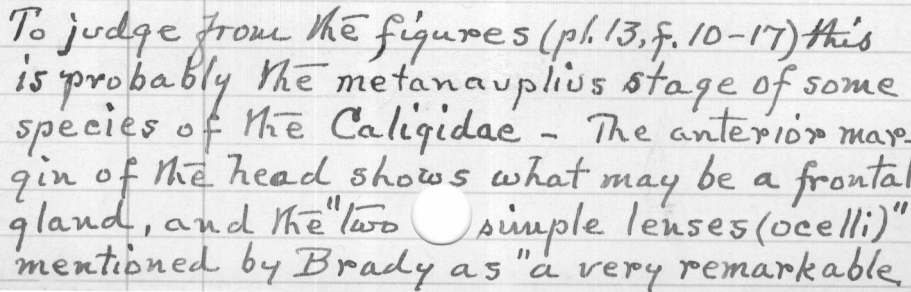 To judge from the figures (pl. 13, f. 10-17) this
is probably the metanauplius stage of some
species of the Caligidae - The anterior mar-
gin of the head shows what may be a frontal
gland, and the "two simple lenses (ocelli)"
mentioned by Brady as "a very remarkable